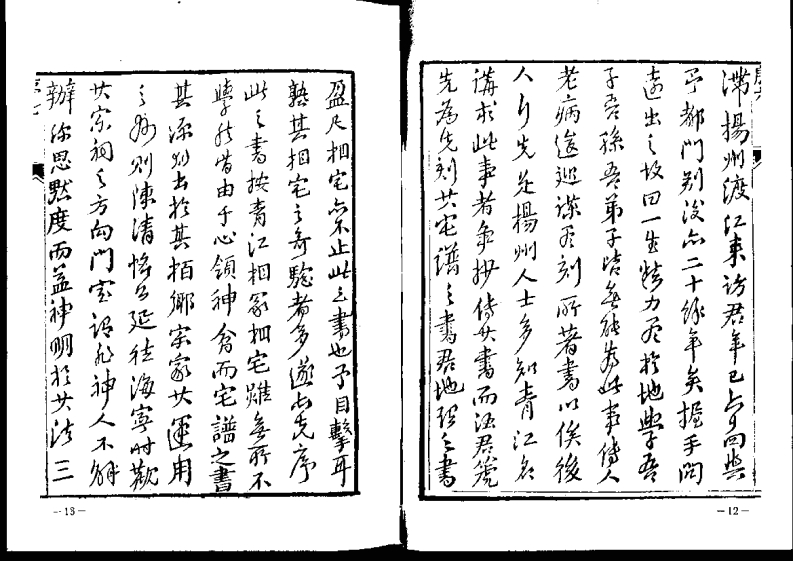 滞揚州渡江来訪君年已六旬與
予都門别後亦二十餘年矣握手問
遠出之故曰一生精力在於地學吾
子吾孫吾弟子皆無能為此事傳人
老病送廻謀為刻所著書以俟後
人行先是揚州人士多知青江名
講求此事者爭抄傳其書而酒君
先為先刻其宅譜之書君地理之書
-12-
序七
盈尺相宅亦不止此之書也予目擊耳
熟其相宅之奇驗者多遂為先序
此之書按青江相冢相宅雖無所不
學然皆由于心領神會而宅譜之書
其源則出於其栢鄉宗家其運用
之妙則陳清恪公延往海寧時觀
其宗祠之方向門室謂非神人不能
辦徐思默度而益神明於其法三
-13-